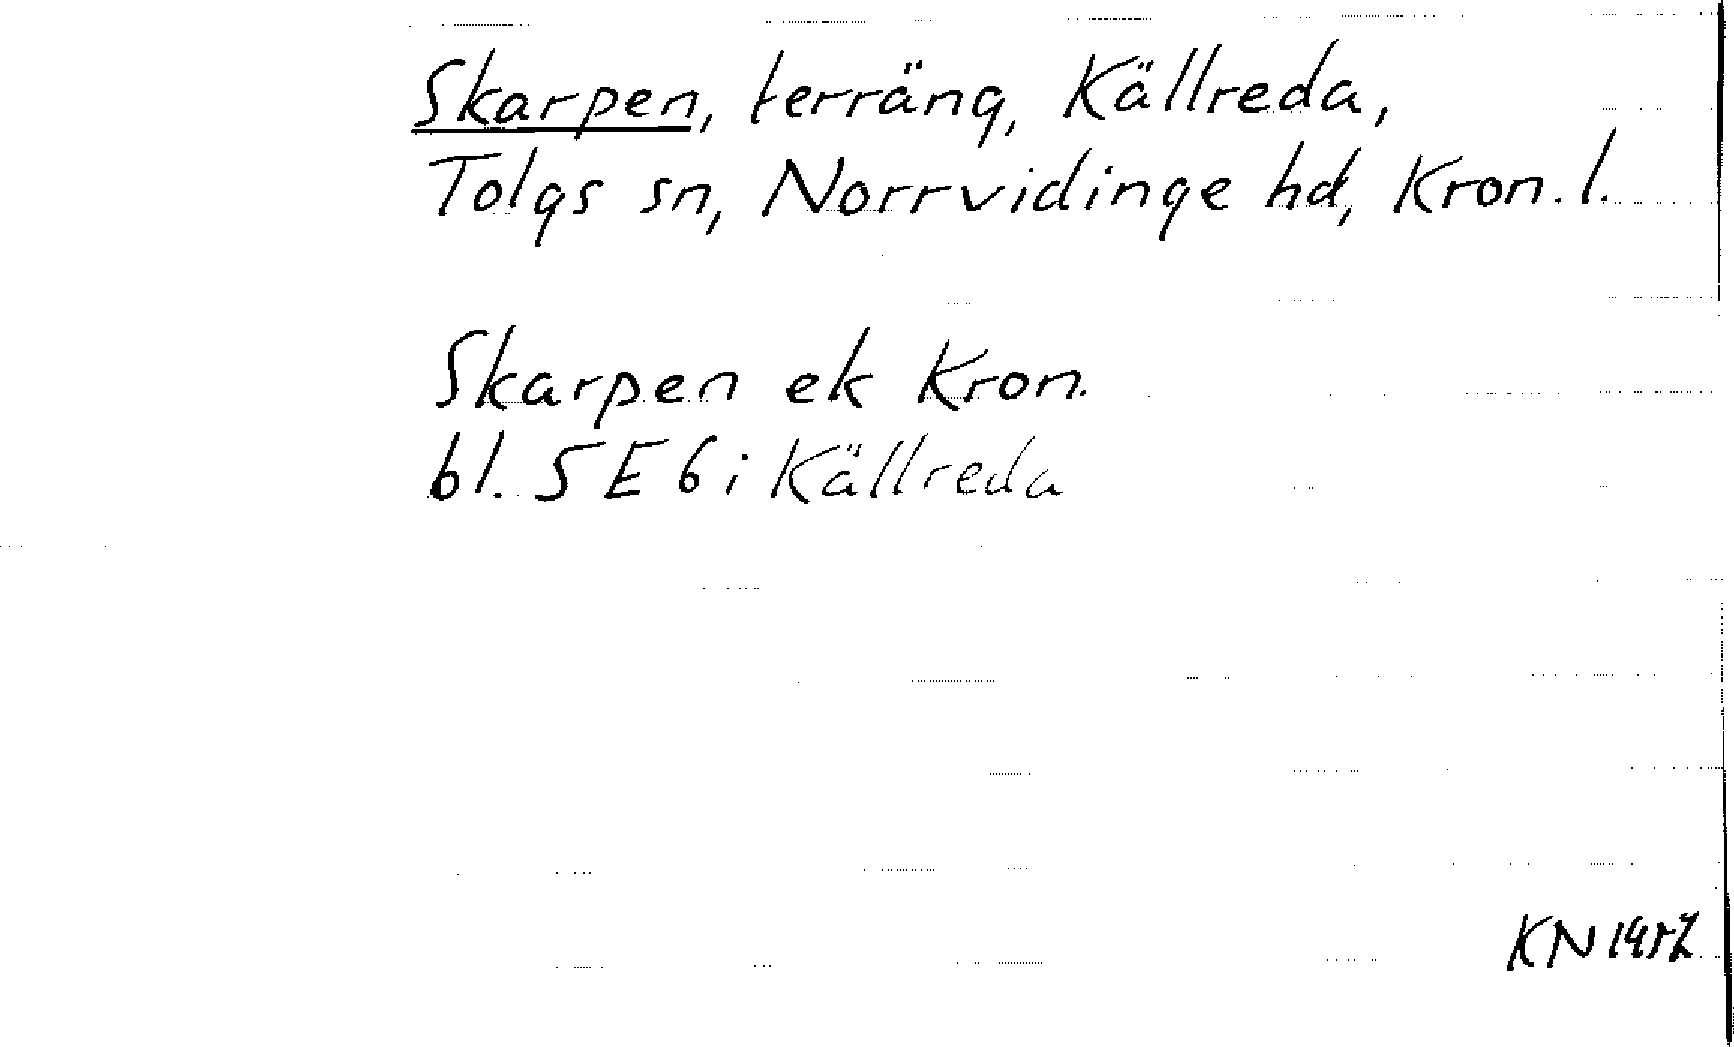 Skarpen, terräng, Källreda,
Tolgs sn, Norrvidinge hd, Kron. l.
Skarpen ek Kron.
bl. 5 E 6 i Källreda
KN 1957